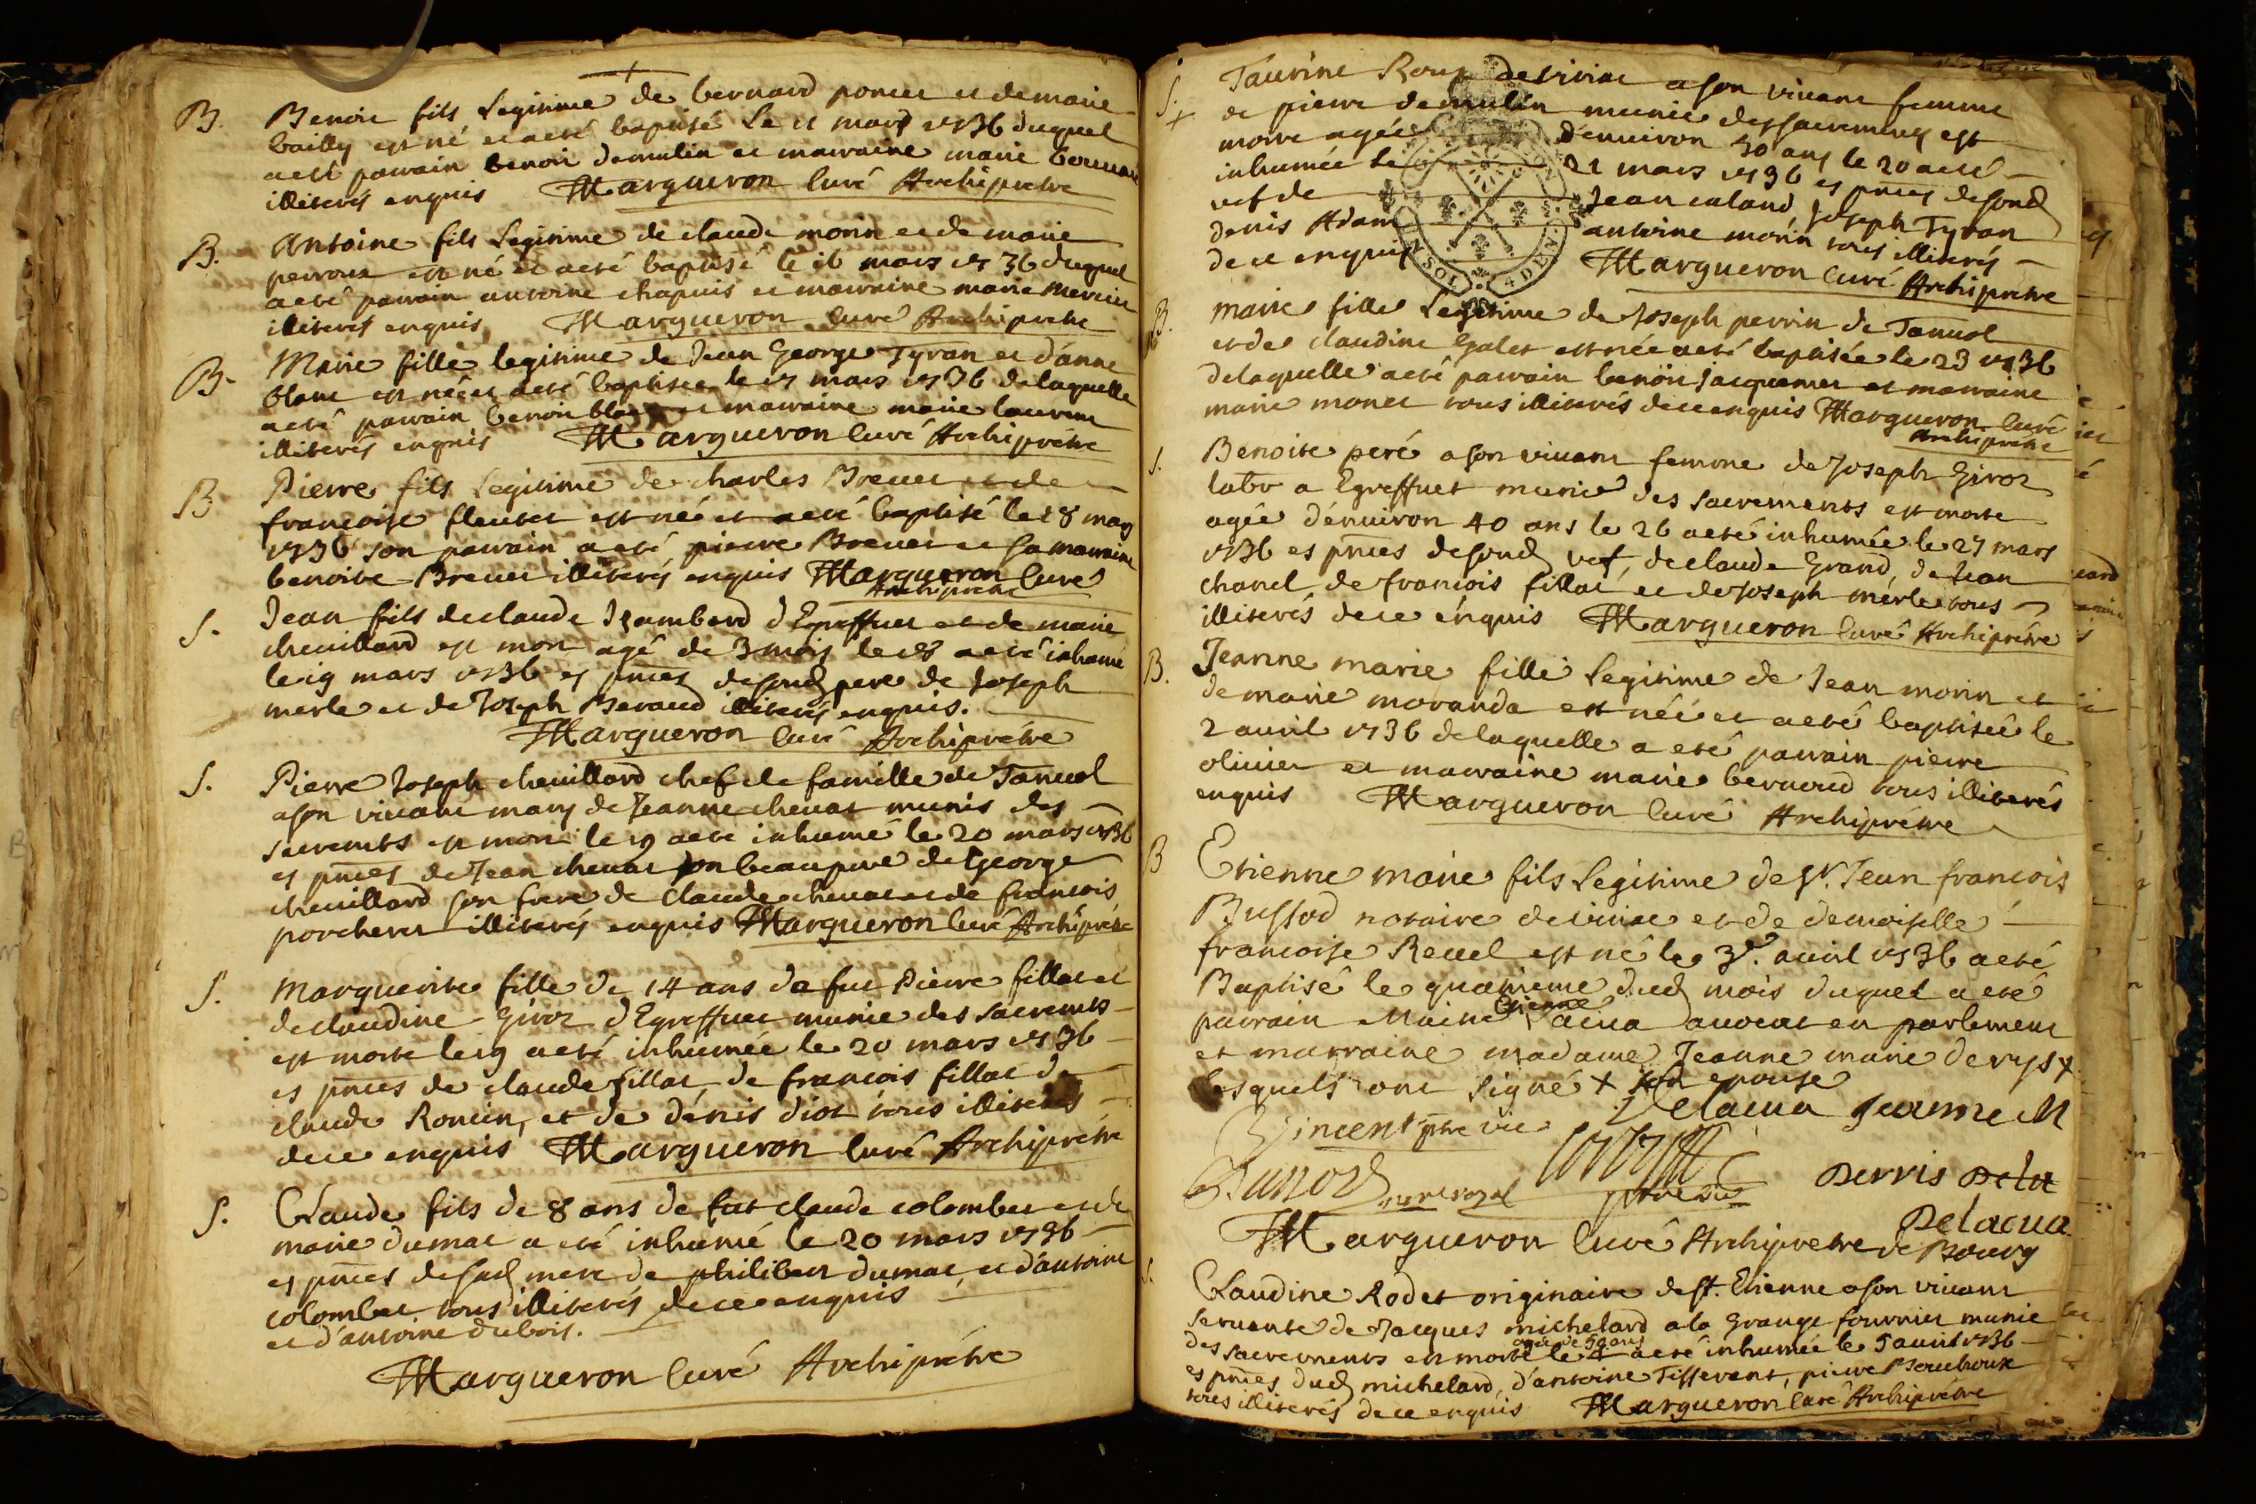 B. Benoit fils Legitime de bernard poncet et de marie
bailly est né et a eté baptisé Le 11 mars 1736 duquel
a eté parrain benoit demulin et marraine marie
illiterés enquis Margueron Curé Archipretre
B. Antoine fils Legitime de claude morin et de marie
perroux est né et a eté baptisé le 16 mars 1736 duquel
a eté parrain antoine chapuis et marraine marie Mercier
illiterés enquis Margueron Curé Archipretre
B. Marie fille legitime de Jean George Tyran et d'anne
blanc est née et a eté baptisée le 17 mars 1736 de laquelle
a eté parrain benoit blanc et marraine marie laurent
illiterés enquis Margueron Curé Archiprétre
B Pierre fils Legitime de charles Brevet et de
francoise fleutet est né et a eté baptisé le 18 mars
1736 son parrain a eté pierre Brevet et sa marraine
benoite Brevet illiterés enquis Margueron Curé
Archiprétre
S. Jean fils de claude Isambard d'Egreffuet et de marie
chevillard est mort agé de 3 mois le 18 a eté inhumé
le 19 mars 1736 es pnces desond pere de Joseph
merle et de Joseph Beraud illiterés enquis.
Margueron Curé Archiprétre
S. Pierre Joseph chevillard chef de famille de Tanuol
a son vivant mary de Jeanne chevat munis des
sacremts est mort le 19 a eté inhumé le 20 mars 1736
es pnces de Jean chevat son beaupere de George
chevillard son frere de claude chevat et de francois
porcheret illiterés enquis Margueron Curé Archiprétre
S. Marguerite fille de 14 ans de fut Pierre fillat et
de claudine Giroz d'Egreffuet munie des sacremts
est morte le 19 a eté inhumée le 20 mars 1736
es pnces de claude fillat, de francois fillat de
claude Roncin, et de dénis diot tous illiterés
de ce enquis Margueron Curé Archiprétre
S. Claude fils de 8 ans de fut claude colombet et de
marie dumat a eté inhumé le 20 mars 1736
es pnces de sad mere de philibert dumat et d'antoine
colombet tous illiterés de ce enquis
et d'antoine dubois.
Margueron Curé Archiprétre
S. Taurine Roux de viriat a son vivant femme
de pierre demulin munie des sacrements est
morte agée d'environ 50 ans le 20 a eté
inhumée le 21 mars 1736 es pnces desond
vef de Jean caland, Joseph Tyran
denis Adam antoine morin tous illiterés
de ce enquis Margueron Curé Archiprétre
B. marie fille Legitime de Joseph perrin de Tanuol
et de claudine Galet est née a eté baptisée le 23 1736
de laquelle a eté parrain benoit Jacquemet et marraine
marie monet tous illiterés de ce enquis Margueron Curé
Archiprétre
S. Benoite peré a son vivant femme de Joseph Giroz
labr a Egreffuet munie des sacrements est morte
agée d'environ 40 ans le 26 a eté inhumée le 27 mars
1736 es pnces desond vef, de claude Grand, de Jean
chanel de francois fillat et de Joseph merle tous
illiterés de ce enquis Margueron Curé Archiprétre
B. Jeanne marie fille Legitime de Jean morin et
de marie moranda est née et a eté baptisée le
2 avril 1736 de laquelle a eté parrain pierre
olivier et marraine marie bernoud tous illiterés
enquis Margueron Curé Archipretre
B Etienne marie fils Legitime de Sr. Jean francois
Buffod notaire de viriat et de demoiselle
francoise Revel est né le 3e. avril 1736 a eté
Baptisé le quatrieme dud mois duquel a eté
parrain Maitre Etienne acua avocat en parlement
et marraine madame Jeanne marie de rys +
lesquels ont signé + son epouse
Delacua Jeanne M
Vincent ptre vic
nore royal
Derris Dela
Delacua
Margueron Curé Archipretre de Bourg
S. Claudine Rodet originaire de St. Etienne a son vivant
servante de Jacques michelard a la Grange fournier munie
des sacrements est morte agée de 50 ans le 4 a eté inhumée le 5 avril 1736
es pnces dud michelard, d'antoine Tisserant, pierre
tous illiterés de ce enquis Margueron Curé Archiprétre